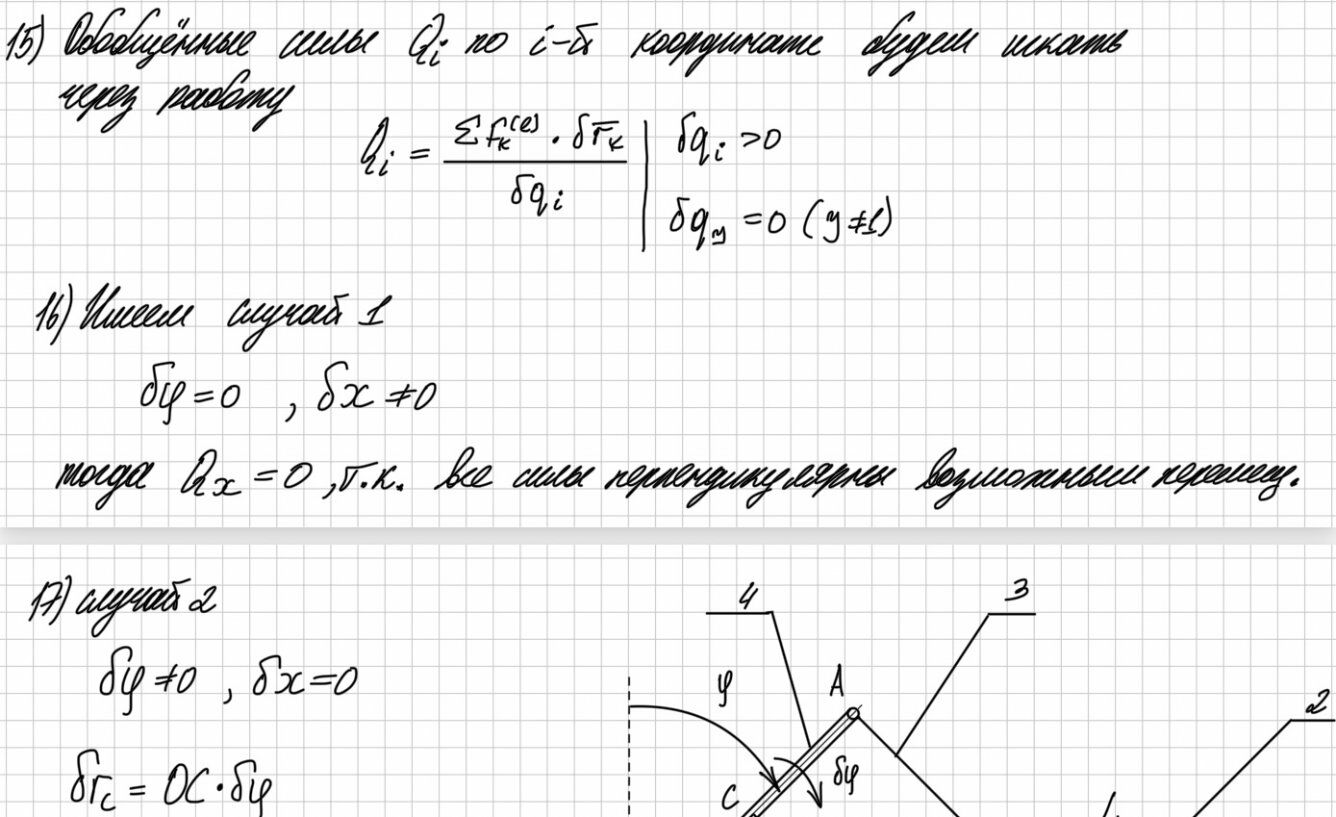 15) Обобщённые силы Qi по i-й координате будем искать
через работу
Qi = Σ Fₖ⁽ᵉ⁾ · δr̅ₖ / δqi | δqi > 0
δqy = 0 (y ≠ 1)
16) Имеем случай 1
δφ = 0 , δx ≠ 0
тогда Qx = 0 , т.к. все силы перпендикулярны возможным перемещ.
17) случай 2
δφ ≠ 0 , δx = 0
δrc = OC · δφ
4
3
φ
A
2
δφ
C